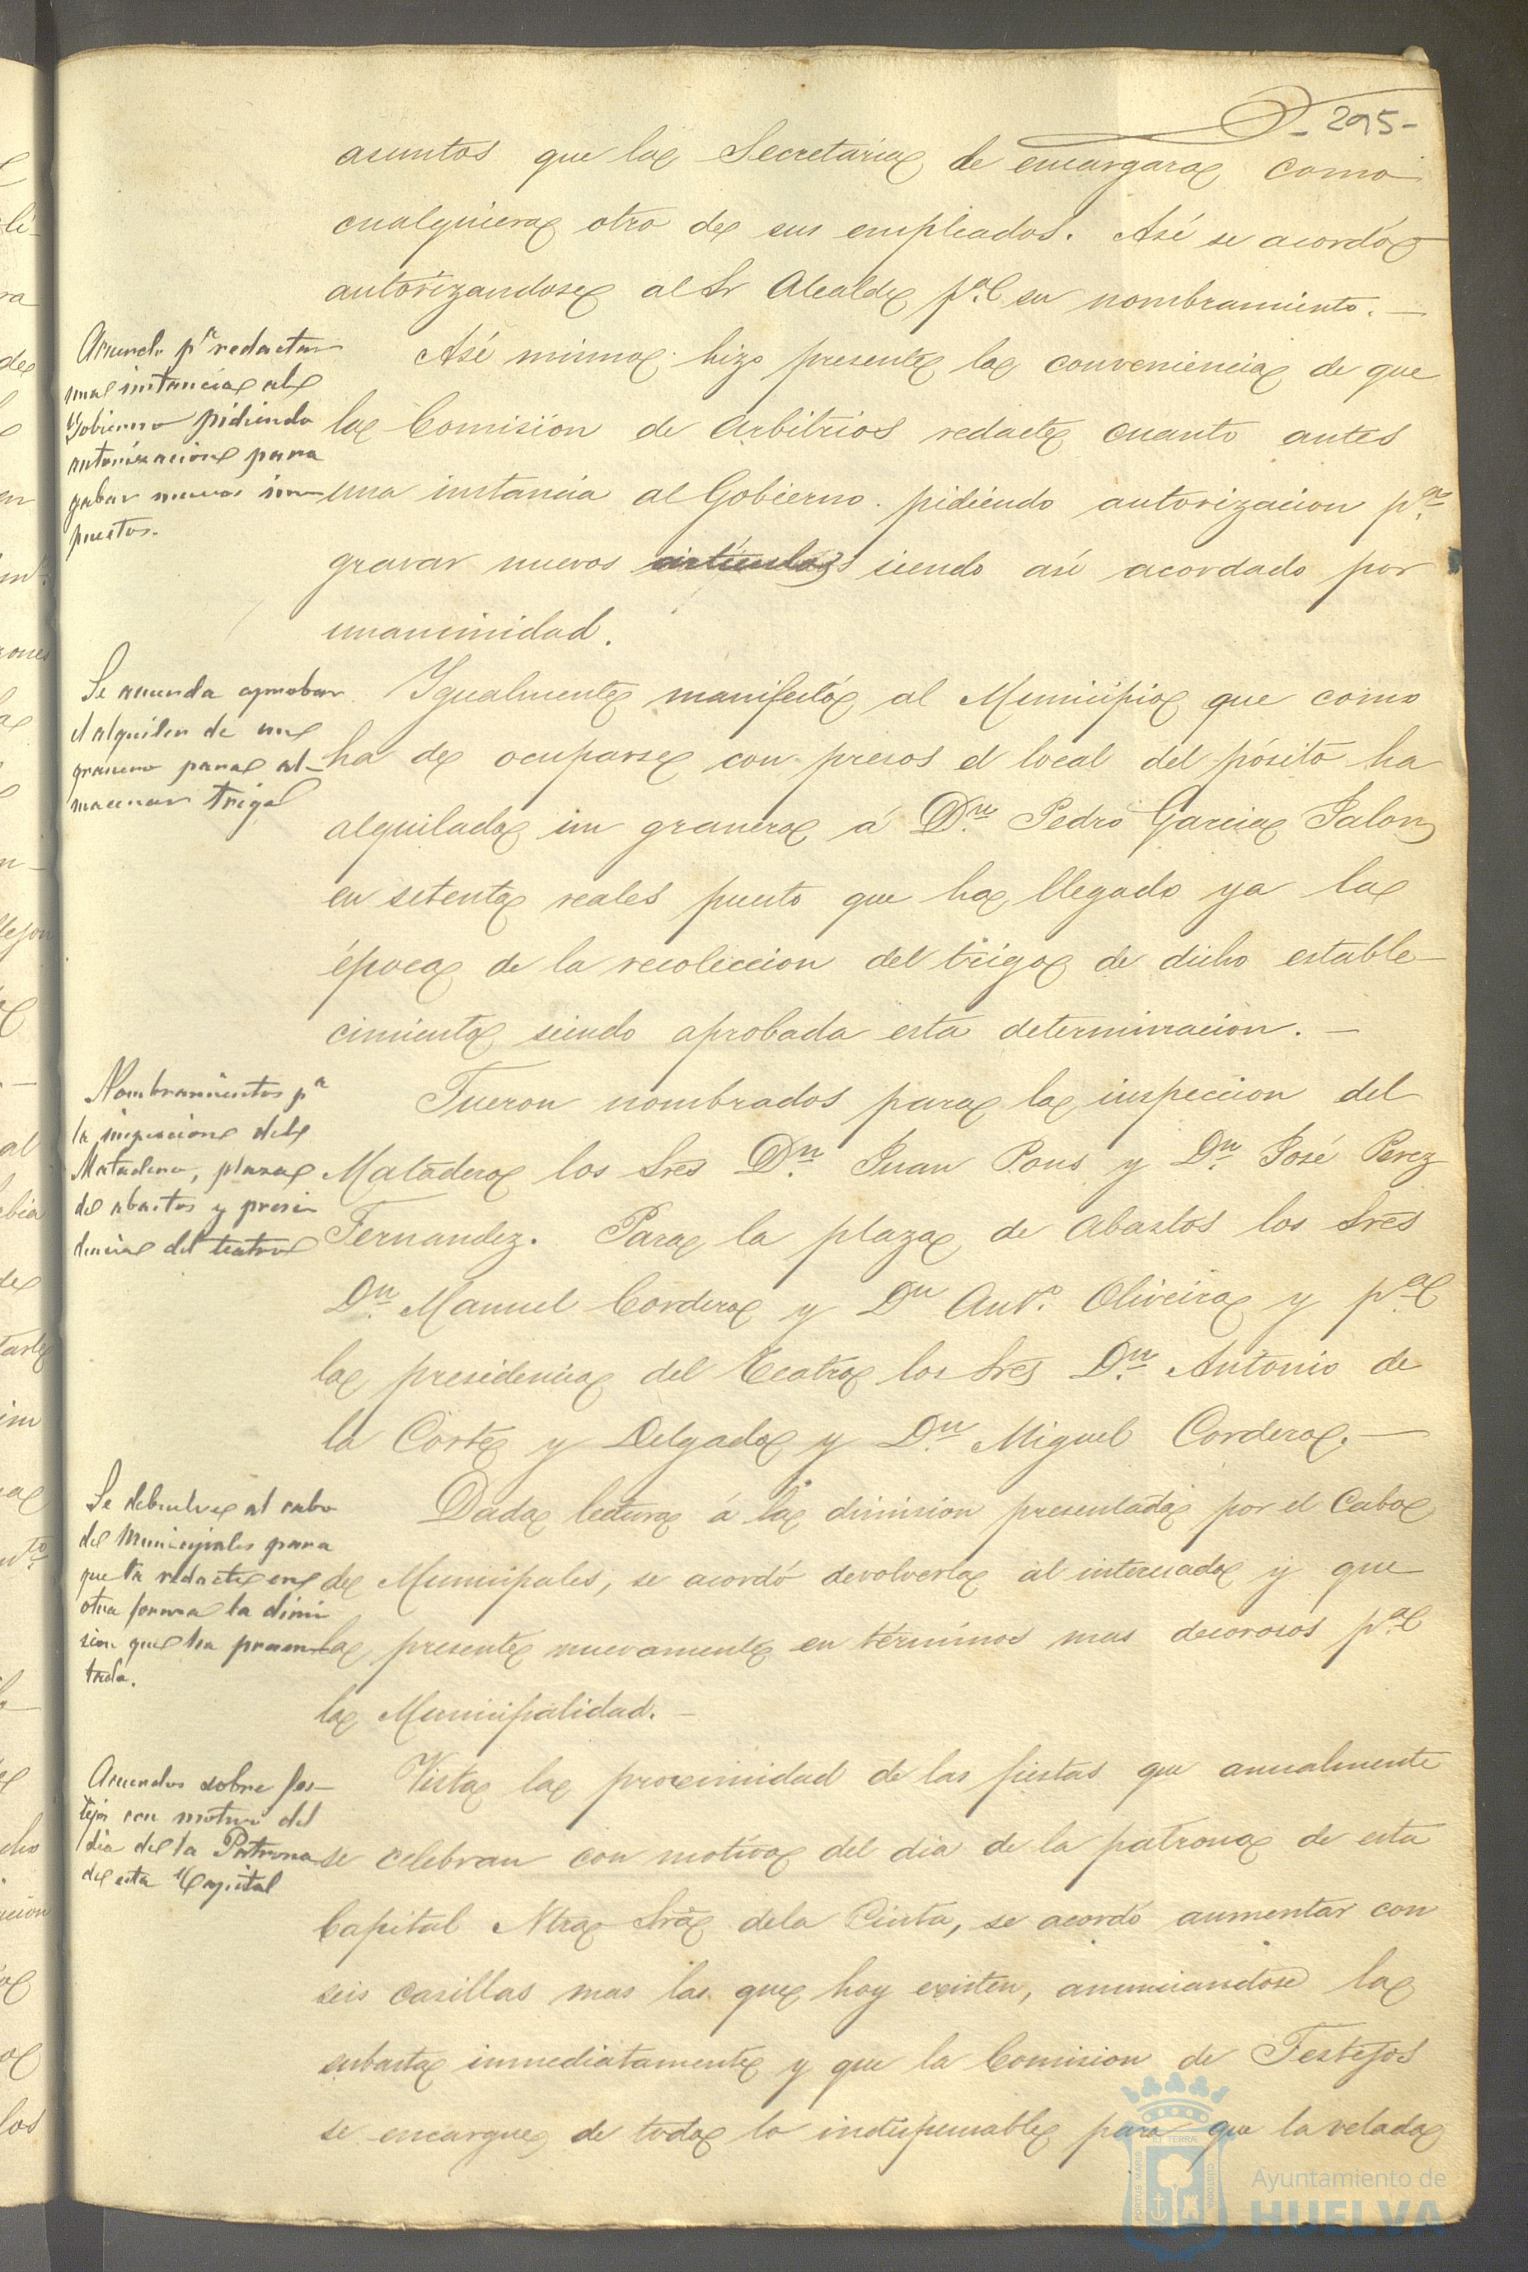 - 295 -
asuntos que la Secretaria le encargara como
cualquiera otro de sus empleados. Asi se acordó
autorizandose al Sr Alcalde p.ª su nombramiento. —
Acuerdo pª redactar
una instancia al
Gobierno pidiendo
autorizacion para
gabar nuevos im-
puestos.
Asi mismo hizo presente la conveniencia de que
la Comisión de Arbitrios redacte cuanto antes
una instancia al Gobierno pidiendo autorizacion p.ª
gravar nuevos articulos siendo asi acordado por
unanimidad.
Se acuerda aprobar
el alquiler de un
granero para al-
macenar trigo
Igualmente manifestó al Municipio que como
ha de ocuparse con presos el local del pósito ha
alquilado un granero á D.n Pedro Garcia Jalon
en setenta reales puesto que ha llegado ya la
época de la recoleccion del trigo de dicho estable-
cimiento siendo aprobada esta determinacion. —
Nombramientos pª
la inspeccion del
Matadero, plaza
de abastos y presi
dencia del teatro
Fueron nombrados para la inspeccion del
Matadero los Sres D.n Juan Pons y D.n José Perez
Fernandez. Para la plaza de abastos los Sres
D.n Manuel Cordero y Dn Ant.º Oliveira y p.ª
la presidencia del Teatro los Sres D.n Antonio de
la Corte y Delgado y D.n Miguel Cordero. —
Se debuelve al cabo
de Municipales para
que la redacte en
otra forma la dimi
sion que ha presen
tada.
Dada lectura á la dimision presentada por el Cabo
de Municipales, se acordó devolverla al interesado y que
la presente nuevamente en términos mas decorosos p.ª
la Municipalidad. —
Acuerdos sobre fes-
tejos con motivo del
dia de la Patrona
de esta Capital
Vista la proximidad de las fiestas que anualmente
se celebran con motivo del dia de la patrona de esta
Capital Ntra Sra dela Cinta, se acordó aumentar con
seis casillas mas las que hoy existen, anunciandose la
subasta inmediatamente y que la Comision de Festejos
se encargue de todo lo indispensable para que la velada
Ayuntamiento de
HUELVA